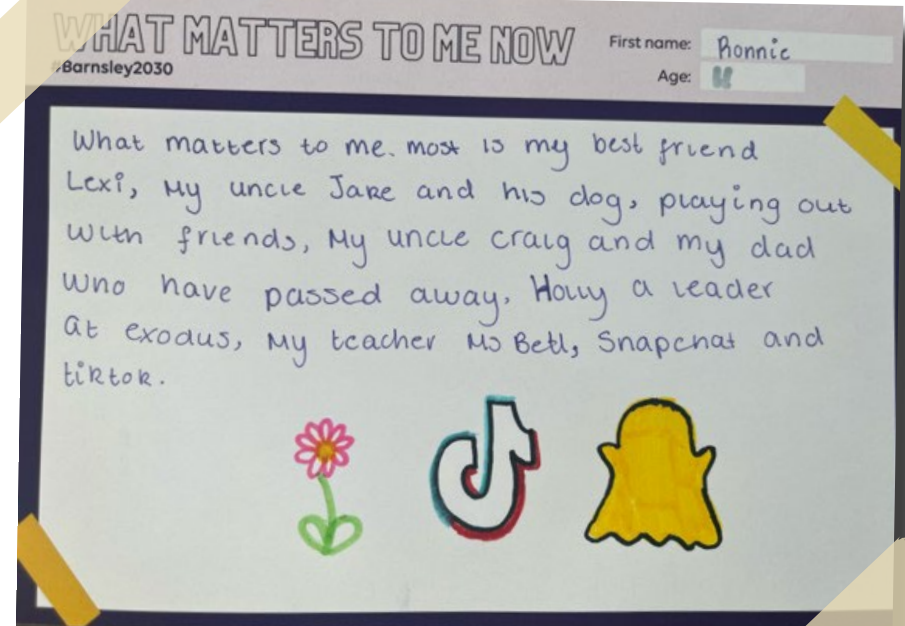 WHAT MATTERS TO ME NOW
#Barnsley2030
First name: Ronnie
Age:
What matters to me. most is my best friend
Lexi, My uncle Jake and his dog, playing out
with friends, My uncle craig and my dad
who have passed away, Holly a leader
at exodus, My teacher Ms Betl, Snapchat and
tiktok.